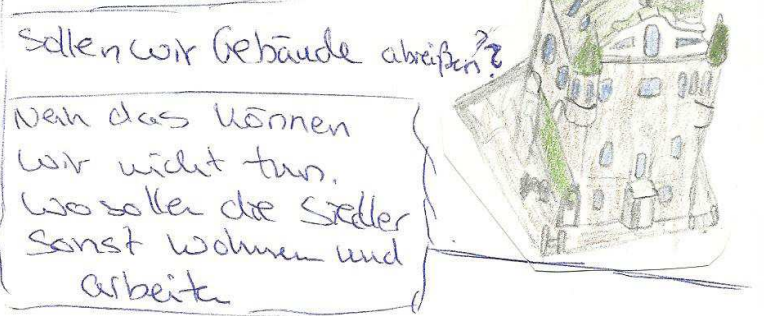 Sollen wir Gebäude abreißen??
Nein das können
wir nicht tun.
Wo sollen die Siedler
sonst wohnen und
arbeiten